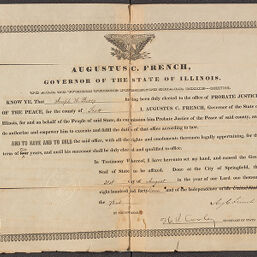 AUGUSTUS C. FRENCH,
GOVERNOR OF THE STATE OF ILLINOIS.
TO ALL TO WHOM THESE PRESENTS SHALL COME—GREETING:
KNOW YE, That Joseph having been duly elected to the office of PROBATE JUSTICE
OF THE PEACE, for the county of I, AUGUSTUS C. FRENCH, Governor of the State of
Illinois, for and on behalf of the People of said State, do commission him Probate Justice of the Peace of said county, and
the authorize and empower him to execute and fulfil the duties of that office according to law.
AND TO HAVE AND TO HOLD the said office, with all the rights and emoluments thereunto legally appertaining, for the
term of years, and until his successor shall be duly elected and qualified to office.
In Testimony Whereof, I have hereunto set my hand, and caused the Great
Seal of State to be affixed. Done at the City of Springfield, this
21st day of August in the year of our Lord one thousand
eight hundred and forty and of the Independence of the United States
the
BY THE GOVERNOR,
SECRETARY OF STATE